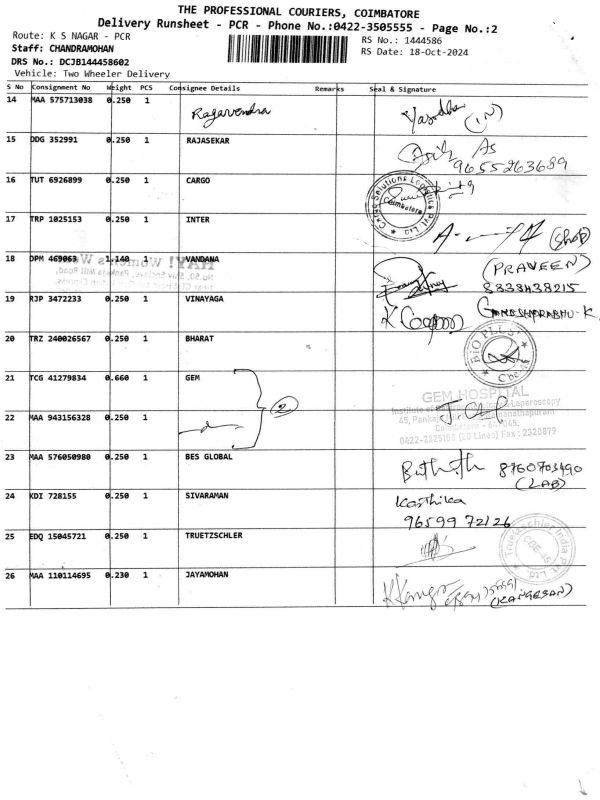 THE PROFESSIONAL COURIERS, COIMBATORE
Delivery Runsheet - PCR - Phone No.:0422-3505555 - Page No.:2
Route: K S NAGAR - PCR
RS No.: 1444586
Staff: CHANDRAMOHAN
RS Date: 18-Oct-2024
DRS No.: DCJB144458602
Vehicle: Two Wheeler Delivery
S No Consignment No Weight PCS Consignee Details Remarks Seal & Signature
14 MAA 575713038 0.250 1 Ragavendra Yasodha (IN)
15 DDG 352991 0.250 1 RAJASEKAR
9655263689
16 TUT 6926899 0.250 1 CARGO
Cargo Solutions Logistics Pvt. Ltd.
Coimbatore
17 TRP 1025153 0.250 1 INTER (Shop)
18 DPM 469063 1.140 1 VANDANA (PRAVEEN)
8838438215
19 RJP 3472233 0.250 1 VINAYAGA GANESHPRABHU-K
20 TRZ 240026567 0.250 1 BHARAT
BIO PLUS
21 TCG 41279834 0.660 1 GEM
2
GEM HOSPITAL
45, Pankaja Mill Road, Ramanathapuram
Coimbatore - 641045.
0422-2325100 (20 Lines) Fax : 2320879
22 MAA 943156328 0.250 1
23 MAA 576050980 0.250 1 BES GLOBAL 8760703490
(LAB)
24 KDI 728155 0.250 1 SIVARAMAN Karthika
96599 72126
25 EDQ 15045721 0.250 1 TRUETZSCHLER
Truetzschler India Pvt. Ltd.
CBE-45
26 MAA 110114695 0.230 1 JAYAMOHAN
(KANGESAN)